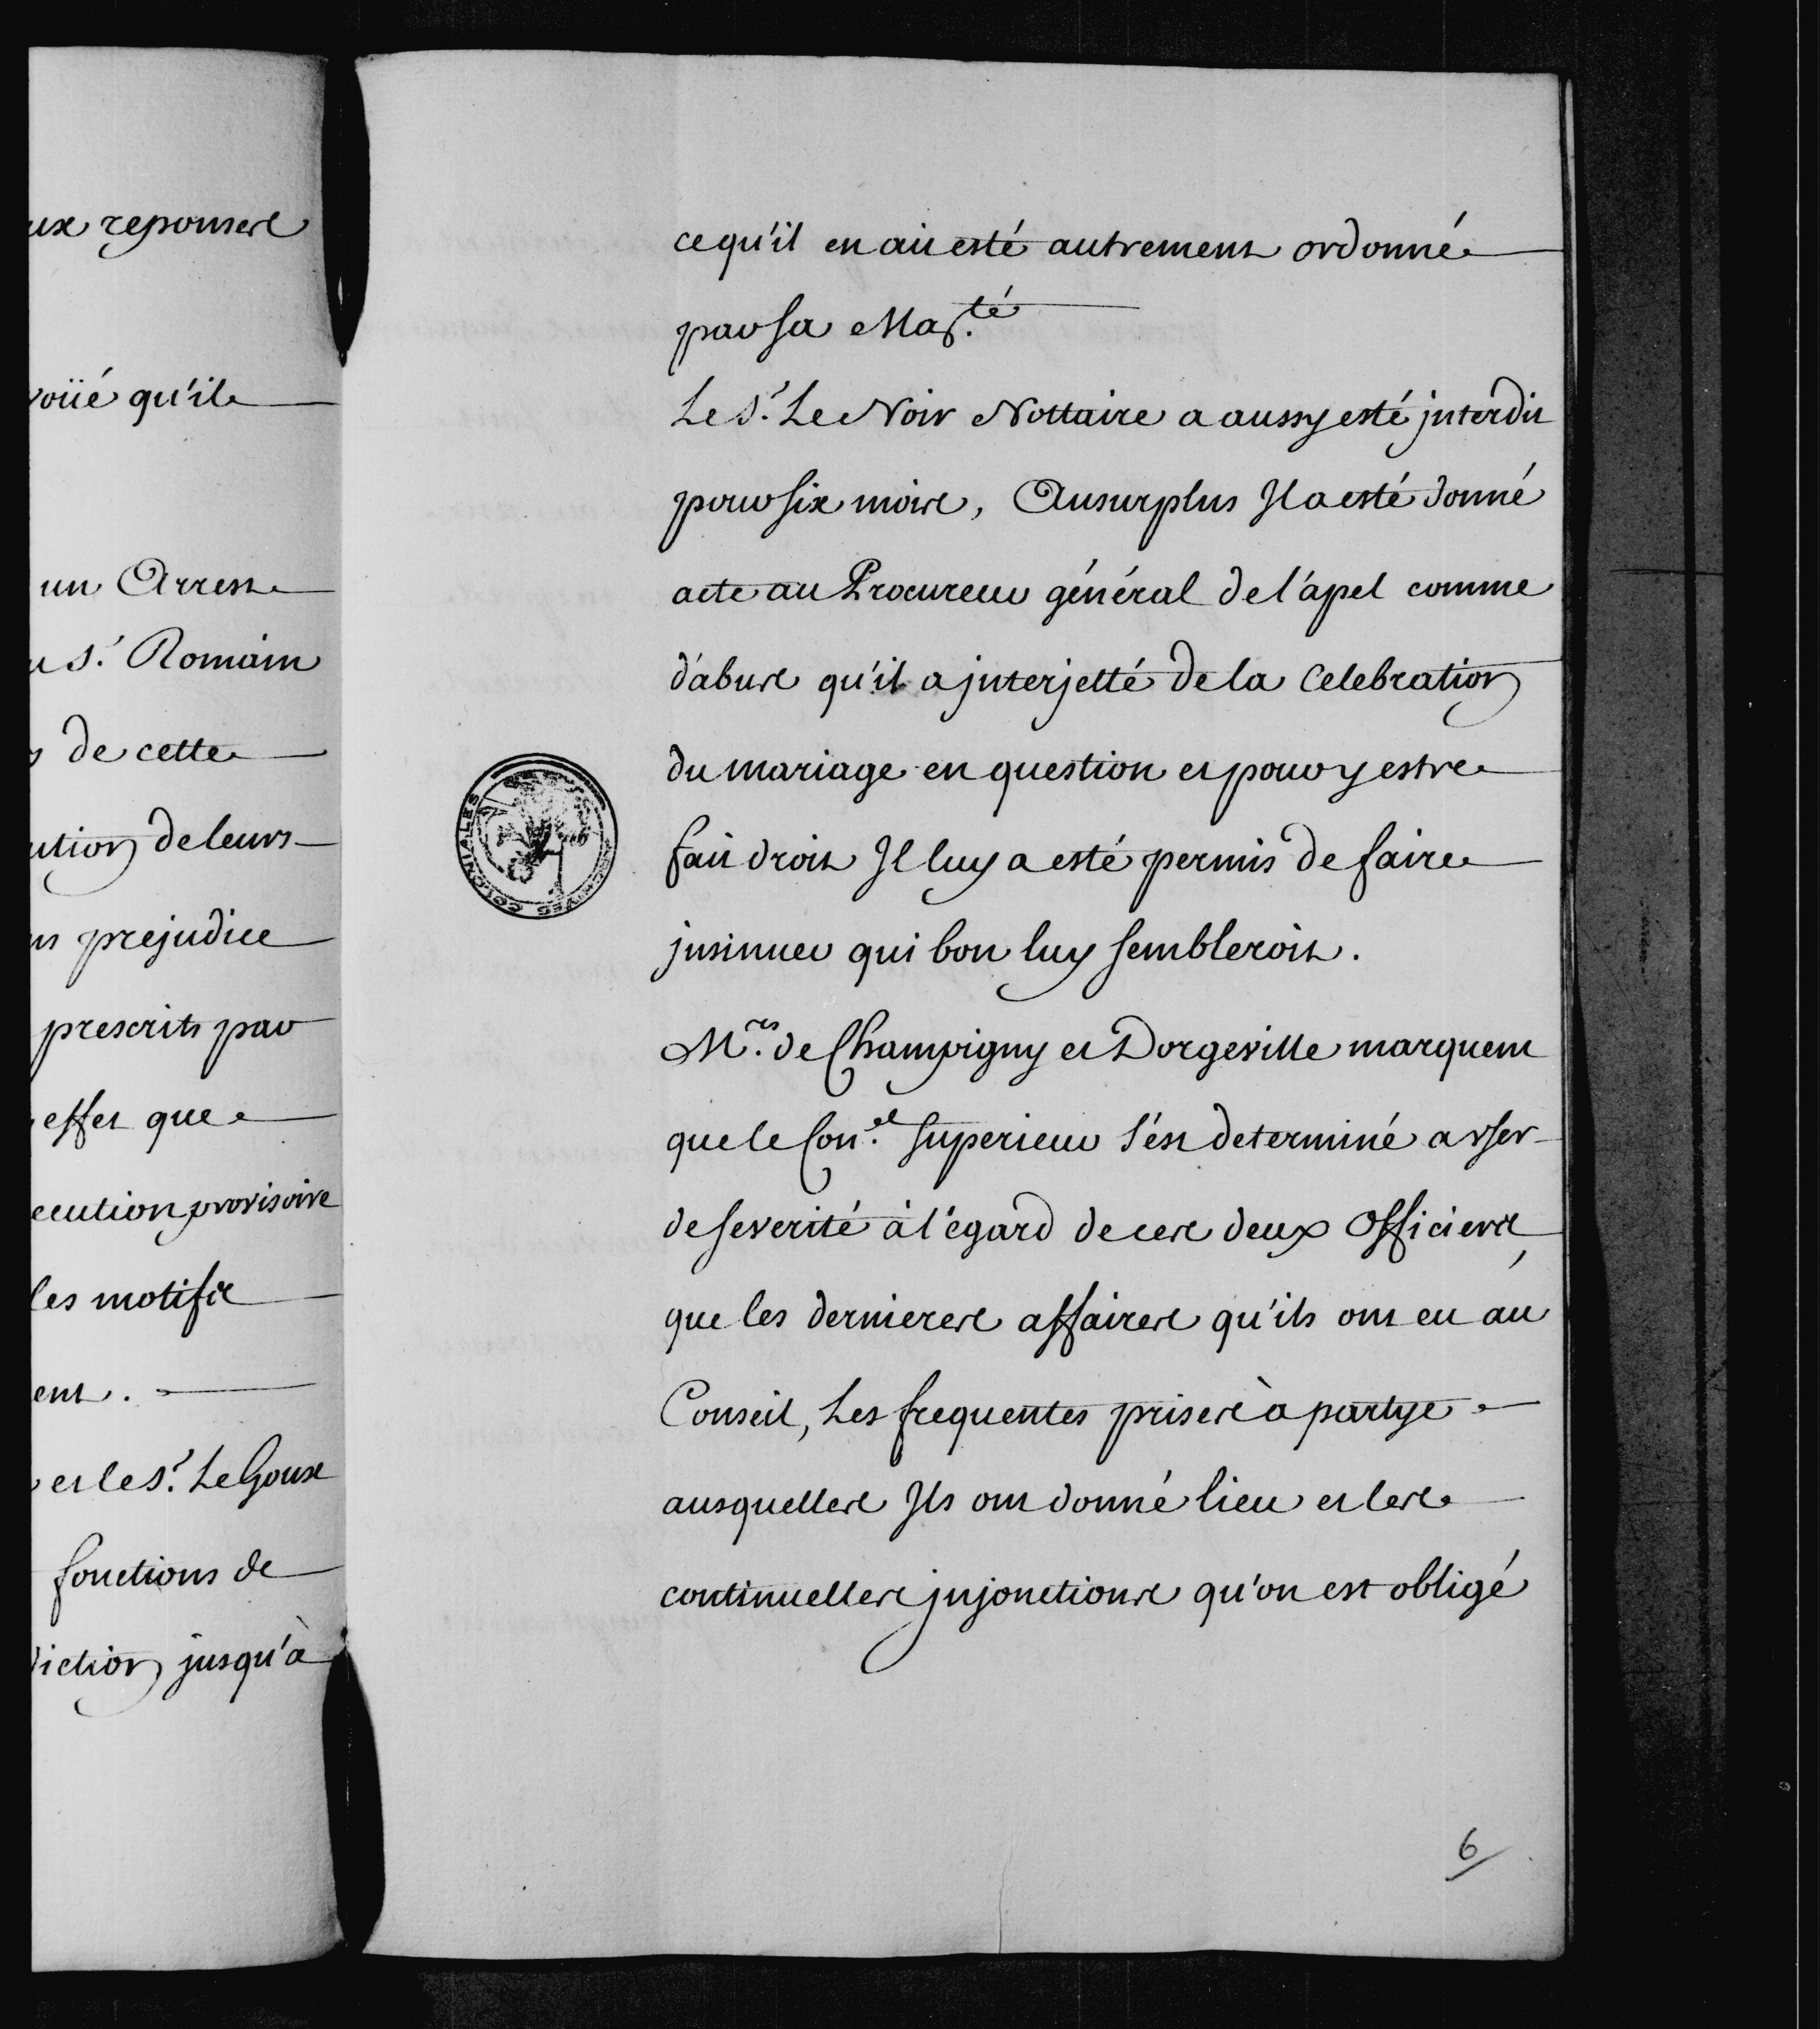 ux reponses
voüé qu'il
un Arrest
u S.r Romain
s de cette
ution de leurs
ns prejudice
prescrits par
effet que
ecution provisoire
les motifs
ent.
et le S.r Le Goux
fonctions de
diction jusqu'à
ce qu'il en ait esté autrement ordonné
par sa Maj.té
Le S.r Le Noir Nottaire a aussy esté jnterdit
pour six mois, Au surplus Jl a esté donné
acte au Procureur général de l'apel comme
d'abus qu'il a jnterjetté de la Celebration
du mariage en question et pour y estre
fait droit Jl luy a esté permis de faire
jnsinuer qui bon luy sembleroit.
M.rs de Champigny et Dorgeville marquent
que le Con.el Superieur s'est determiné a vser
de severité à l'égard de ces deux Officiers,
que les dernieres affaires qu'ils ont eu au
Conseil, Les frequentes prises à partye
ausquelles Jls ont donné lieu et les
continuelles jnjonctions qu'on est obligé
ARCHIVES COLONIALES
6